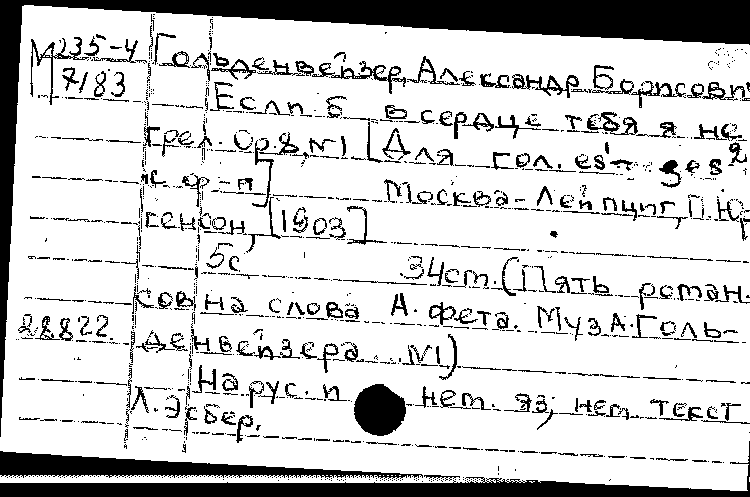 М235-4 Гольденвейзер, Александр Борисович
7183 Если б в сердце тебя я не
грел. Ор.8, №1 [Для гол. es¹ – ges²
с ф-п] Москва-Лейпциг, П. Юр
генсон, [1903]
5с 34cm. (Пять роман.
сов на слова А. Фета. Муз А. Голь-
28822 денвейзера... №1)
На рус. и нем. яз; нем. текст
Л. Эсбер.